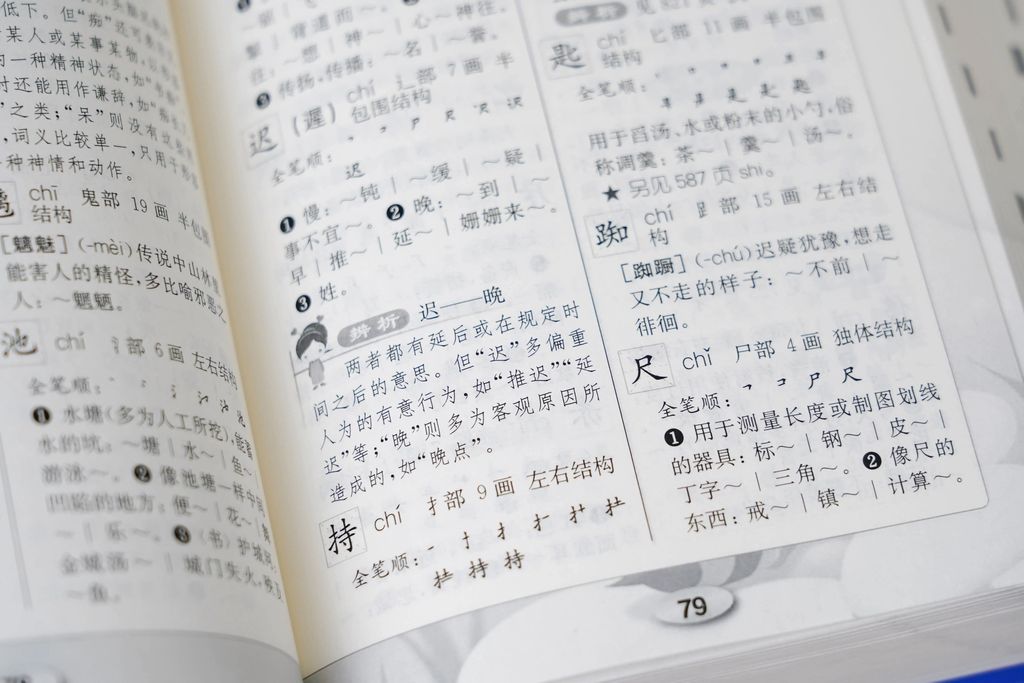 低下。但“痴”还可
某人或某事某物,
的一种精神状态,如“
时还能用作谦辞,如“
”之类;“呆”则没有
,词义比较单一,只用于
一种神情和动作。
chī 鬼部 19画 半包围
结构
[魑魅](-mèi)传说中山林里
能害人的精怪,多比喻邪恶之
人:～魍魉。
池 chí 氵部 6画 左右结构
全笔顺:
❶水塘(多为人工所挖),能蓄
水的坑:～塘|水～|鱼～|
游泳～。❷像池塘一样中间
凹陷的地方:便～|花～|舞
～|乐～。❸(书)护城河:
金城汤～|城门失火,殃及
～鱼。
背道而～。
～想|神～|心～神往。
❸传扬,传播:～名|～誉。
迟(遲) chí 辶部 7画 半
包围结构
全笔顺:
迟
❶慢:～钝|～缓|～疑|
事不宜～。❷晚:～到|～
早|推～|延～|姗姗来～。
❸姓。
辨析 迟——晚
两者都有延后或在规定时
间之后的意思。但“迟”多偏重
人为的有意行为,如“推迟”“延
迟”等;“晚”则多为客观原因所
造成的,如“晚点”。
持 chí 扌部 9画 左右结构
全笔顺:
持 持
匙 chí 匕部 11画 半包围
结构
全笔顺:
用于舀汤、水或粉末的小勺,俗
称调羹:茶～|羹～|汤～。
★另见587页shi。
踟 chí 𧾷部 15画 左右结
构
[踟蹰](-chú)迟疑犹豫,想走
又不走的样子:～不前|～
徘徊。
尺 chǐ 尸部 4画 独体结构
全笔顺: 尸 尺
❶用于测量长度或制图划线
的器具:标～|钢～|皮～|
丁字～|三角～。❷像尺的
东西:戒～|镇～|计算～。
79